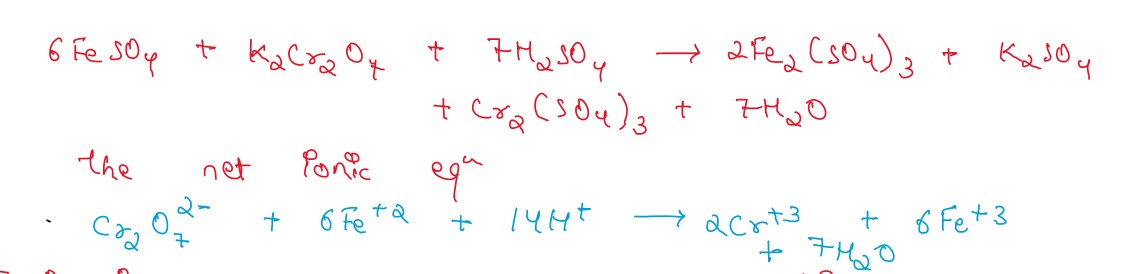 6FeSO₄ + K₂Cr₂O₇ + 7H₂SO₄ → 2Fe₂(SO₄)₃ + K₂SO₄
+ Cr₂(SO₄)₃ + 7H₂O
the net Ionic eqⁿ
Cr₂O₇²⁻ + 6Fe⁺² + 14H⁺ → 2Cr⁺³ + 6Fe⁺³
+ 7H₂O